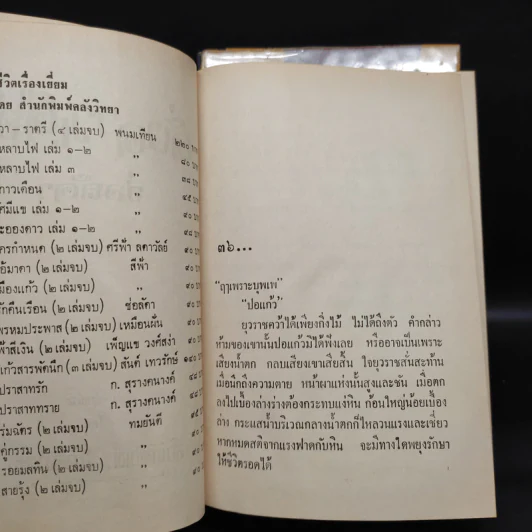 ชีวิตเรื่องเยี่ยม
ดย สำนักพิมพ์คลังวิทยา
วา – ราตรี (๔ เล่มจบ) พนมเทียน ๒๒๐ บาท
หลาบไฟ เล่ม ๑–๒ ,, ๘๐ บาท
หลาบไฟ เล่ม ๓ ,, ๓๘ บาท
กาวเดือน ,, ๔๕ บาท
ศมีแข เล่ม ๑–๒ ,, ๙๐ บาท
ะอองดาว เล่ม ๑–๒ ,,
กรกำหนด (๒ เล่มจบ) ศรีฟ้า ลดาวัลย์
(๒ เล่มจบ) สีฟ้า
มืองแก้ว (๒ เล่มจบ) ,,
กคืนเรือน (๒ เล่มจบ) ช่อลัดา
พรหมประพาส (๒ เล่มจบ) เหมือนฝัน
ฟ้าสีเงิน (๒ เล่มจบ) เพ็ญแข วงศ์สง่า
แก้วสารพัดนึก (๓ เล่มจบ) สันต์ เทวรักษ์ ๑๔๐ บาท
ปราสาทรัก ก. สุรางคนางค์
ปราสาททราย ก. สุรางคนางค์
ร่มฉัตร (๒ เล่มจบ) ทมยันตี
คู่กรรม (๒ เล่มจบ) ,,
รอยมลทิน (๒ เล่มจบ) ,,
สายรุ้ง (๒ เล่มจบ) ,,
๓๖...
“ฤๅเพราะบุพเพ”
“ปอแก้ว”
ยุวราชคว้าได้เพียงกิ่งไม้ ไม่ได้ถึงตัว คำกล่าว
ห้ามของเขานั้นปอแก้วมิได้ฟังเลย หรืออาจเป็นเพราะ
เสียงน้ำตก กลบเสียงเขาเสียสิ้น ใจยุวราชสั่นสะท้าน
เมื่อนึกถึงความตาย หน้าผาแห่งนั้นสูงและชัน เมื่อตก
ลงไปเบื้องล่างร่างต้องกระทบแง่หิน ก้อนใหญ่น้อยเบื้อง
ล่าง กระแสน้ำบริเวณกลางน้ำตกก็ไหลวนแรงและเชี่ยว
หากหมดสติจากแรงฟาดกับหิน จะมีทางใดพยุงรักษา
ให้ชีวิตรอดได้